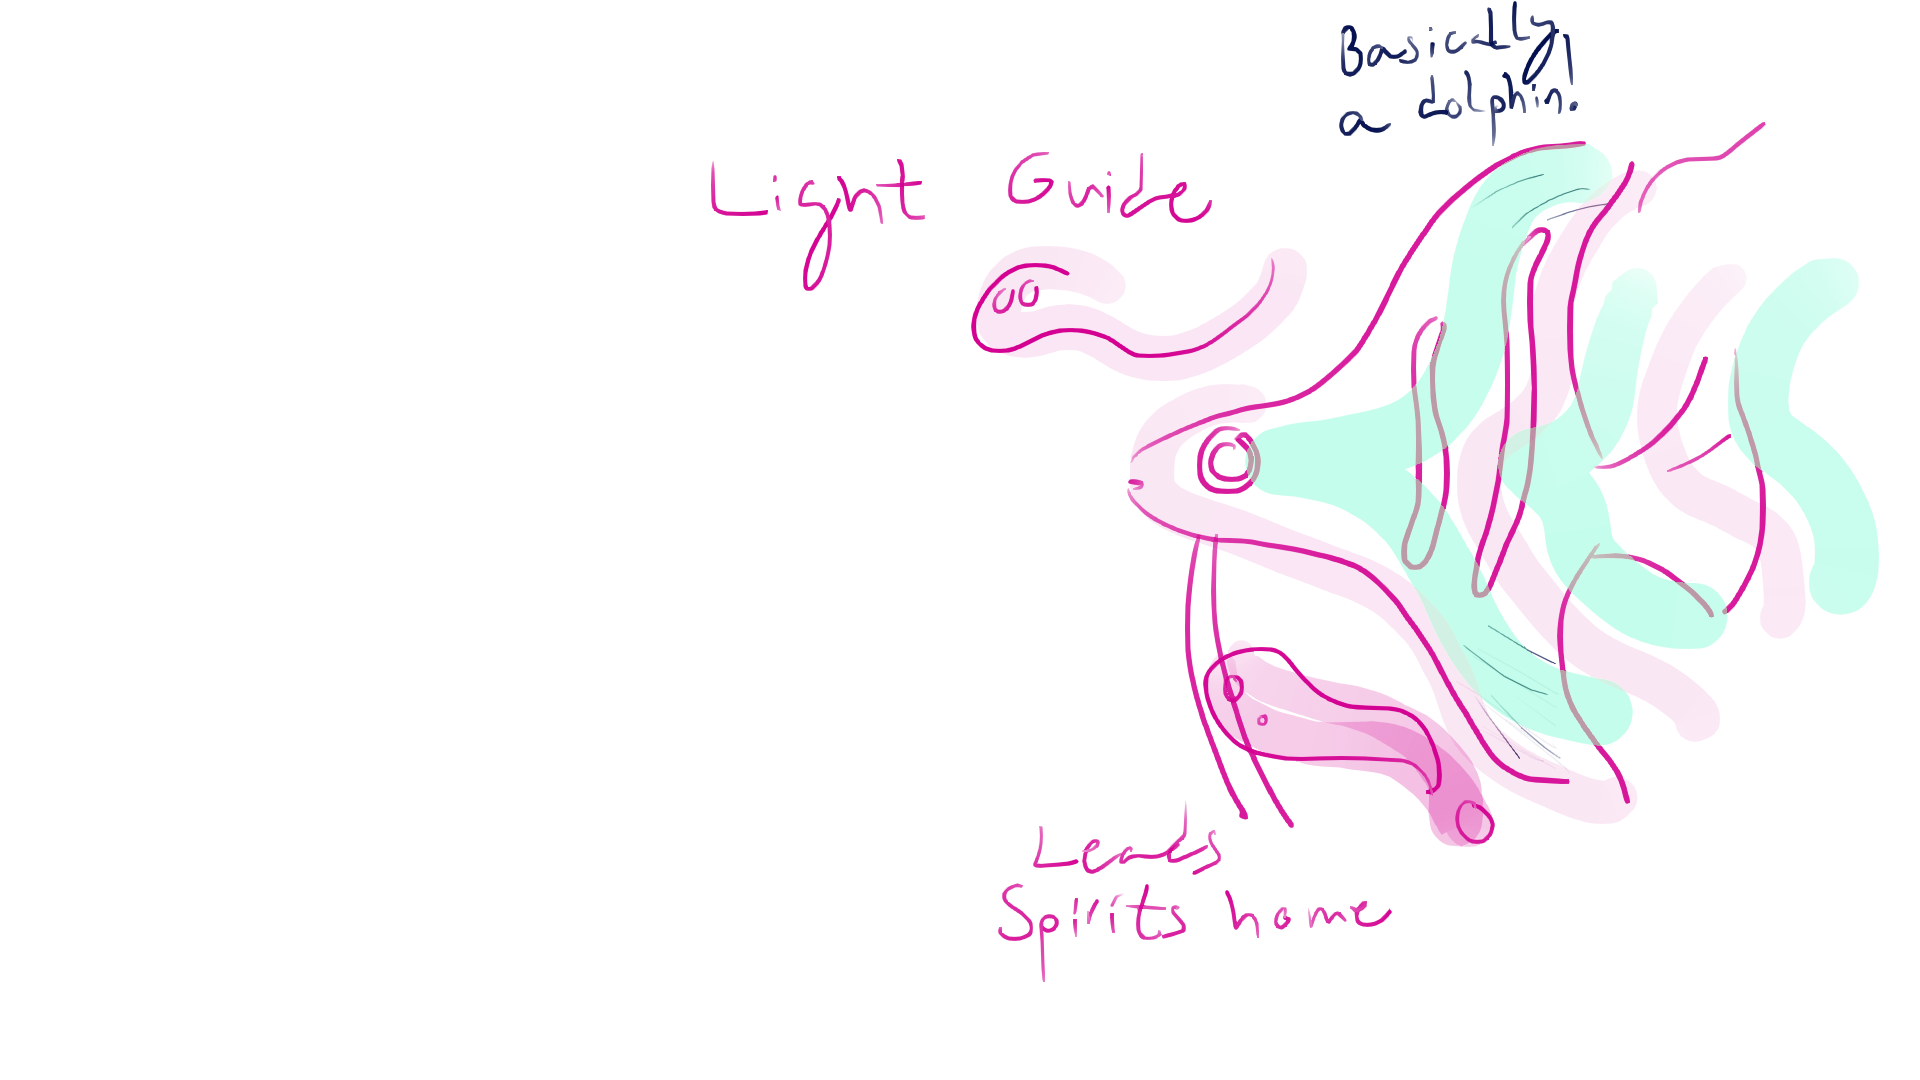 Basically,
a dolphin.
Light Guide
Leads
Spirits home